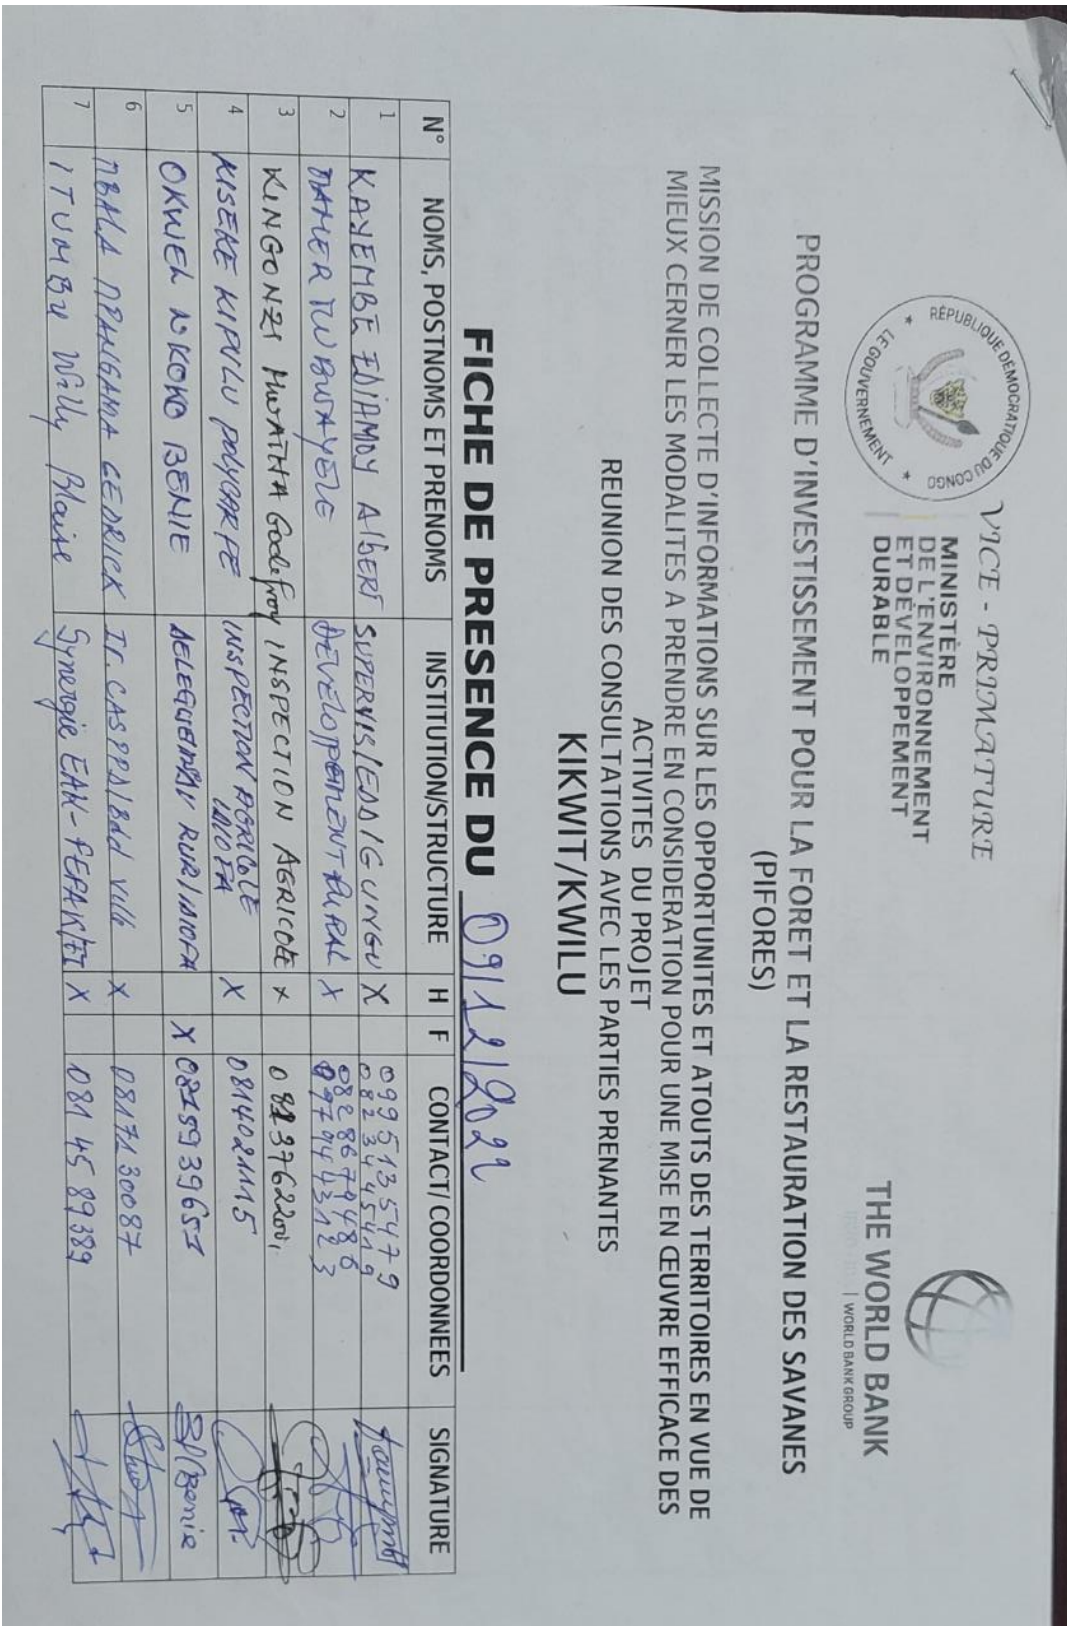 VICE - PRIMATURE
RÉPUBLIQUE DÉMOCRATIQUE DU CONGO
* LE GOUVERNEMENT *
MINISTÈRE
DE L'ENVIRONNEMENT
ET DÉVELOPPEMENT
DURABLE
THE WORLD BANK
| WORLD BANK GROUP
PROGRAMME D'INVESTISSEMENT POUR LA FORET ET LA RESTAURATION DES SAVANES
(PIFORES)
MISSION DE COLLECTE D'INFORMATIONS SUR LES OPPORTUNITES ET ATOUTS DES TERRITOIRES EN VUE DE
MIEUX CERNER LES MODALITES A PRENDRE EN CONSIDERATION POUR UNE MISE EN ŒUVRE EFFICACE DES
ACTIVITES DU PROJET
REUNION DES CONSULTATIONS AVEC LES PARTIES PRENANTES
KIKWIT/KWILU
FICHE DE PRESENCE DU 09/12/2022
N° NOMS, POSTNOMS ET PRENOMS INSTITUTION/STRUCTURE H F CONTACT/ COORDONNEES SIGNATURE
1 KAYEMBE EDIAMOY Albert SUPERVIS/EDD/GUNGU X 0995135479
0823445419
2 DEVELOPPEMENT RURAL X 0828679486
3 KINGONZI Godefroy INSPECTION AGRICOLE x
4 KISEKE KIPULU POLYCARPE INSPECTION AGRICOLE IDIOFA X 0814021115
5 OKWEL NKOKO BENIE RUR/IDIOFA X 0815939651
6 X 0817130087
7 ITUMBU Willy Blaise Synergie X 081 45 89389